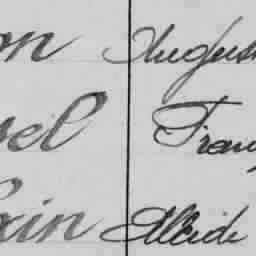 on August
sel Franç
xin Alcide